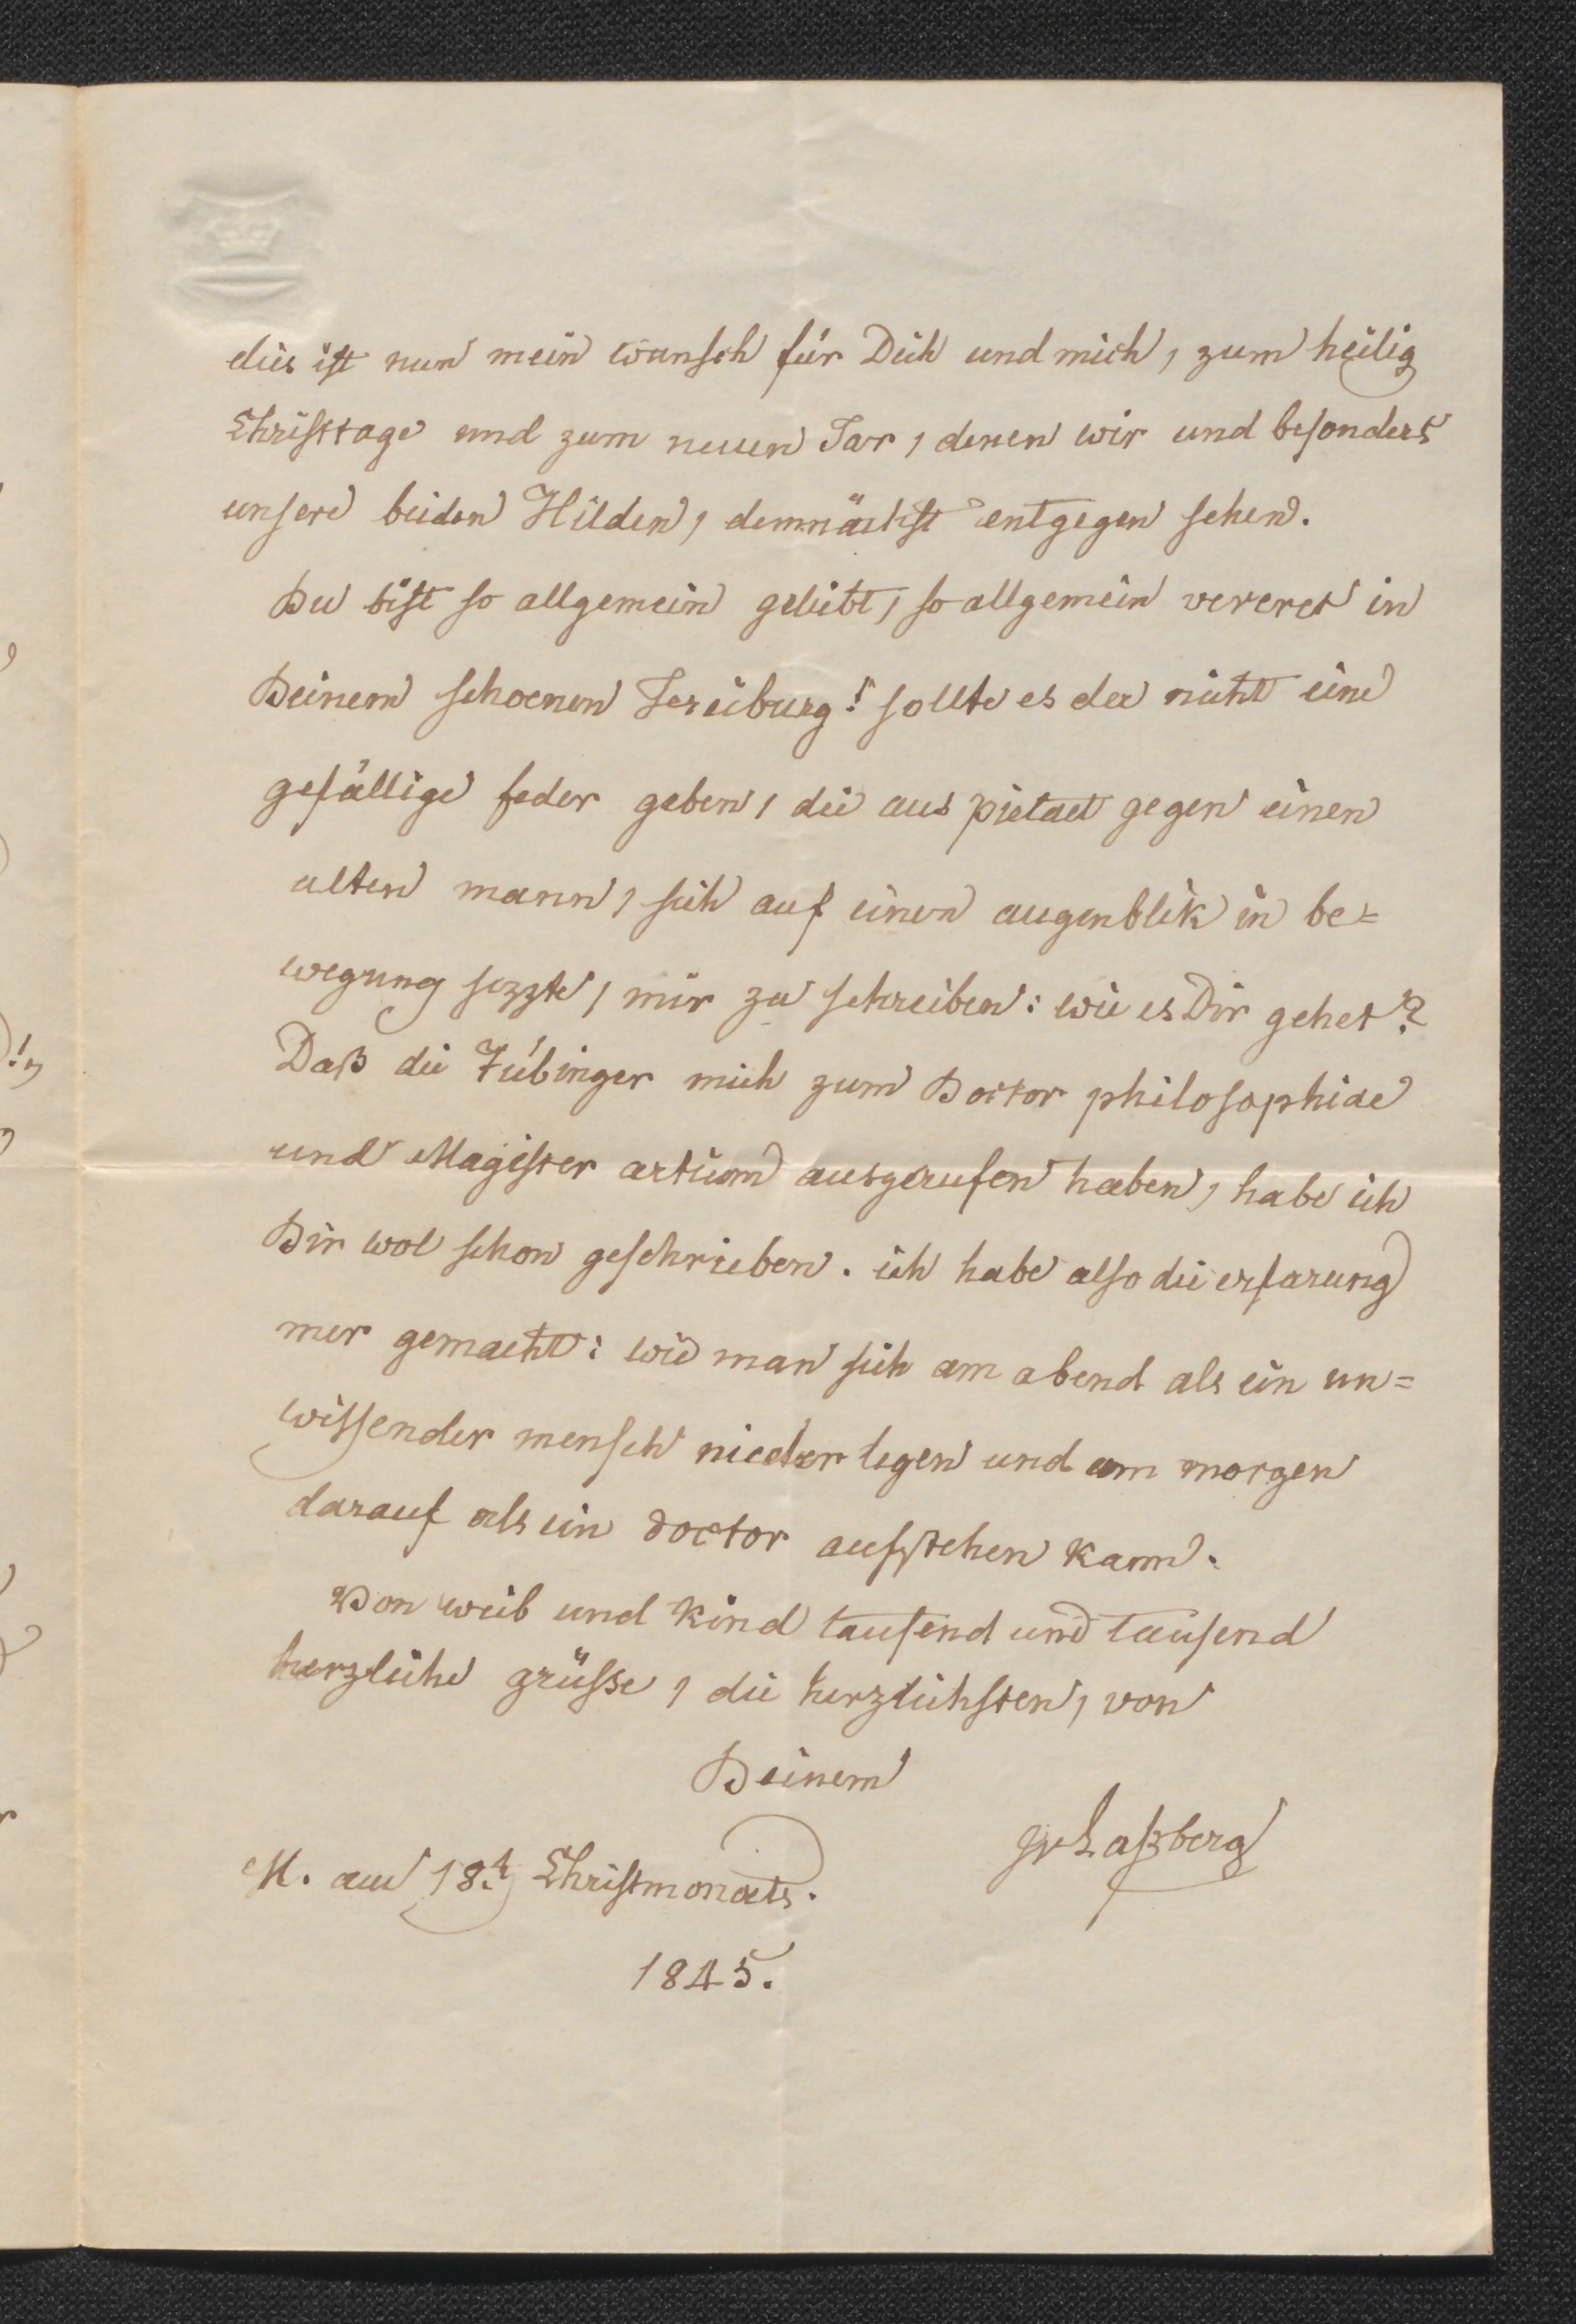 dies ist nun mein wunsch für Dich und mich, zum heilig
Christtage und zum neuen Jar, denen wir und besonders
unsere beiden Hilden, demnächst entgegen sehen.
Du bist so allgemein geliebt, so allgemein vereret in
Deinem schoenen Freiburg! sollte es da nicht eine
gefällige feder geben, die aus pietaet gegen einen
alten mann, sich auf einen augenblik in be=
wegung sezzte, mir zu schreiben: wie es Dir gehet?
Daß die Tübinger mich zum Doctor philosophiae
und Magister artium ausgerufen haben, habe ich
Dir wol schon geschrieben. ich habe also die erfarung
mer gemacht: wie man sich am abend als ein un=
wissender mensch nieder legen und am morgen
darauf als ein doctor aufstehen kann.
Von weib und kind tausend und tausend
herzliche grüsse, die herzlichsten, von
Deinem
JvLaßberg
M. am 18.t Christmonats.
1845.